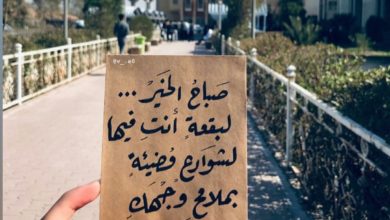 صَباحُ الخَيرُ ...
لبقعةٍ أنتِ فيها
لشوارعٍ مُضيئة
بملامحِ وجُهكِ